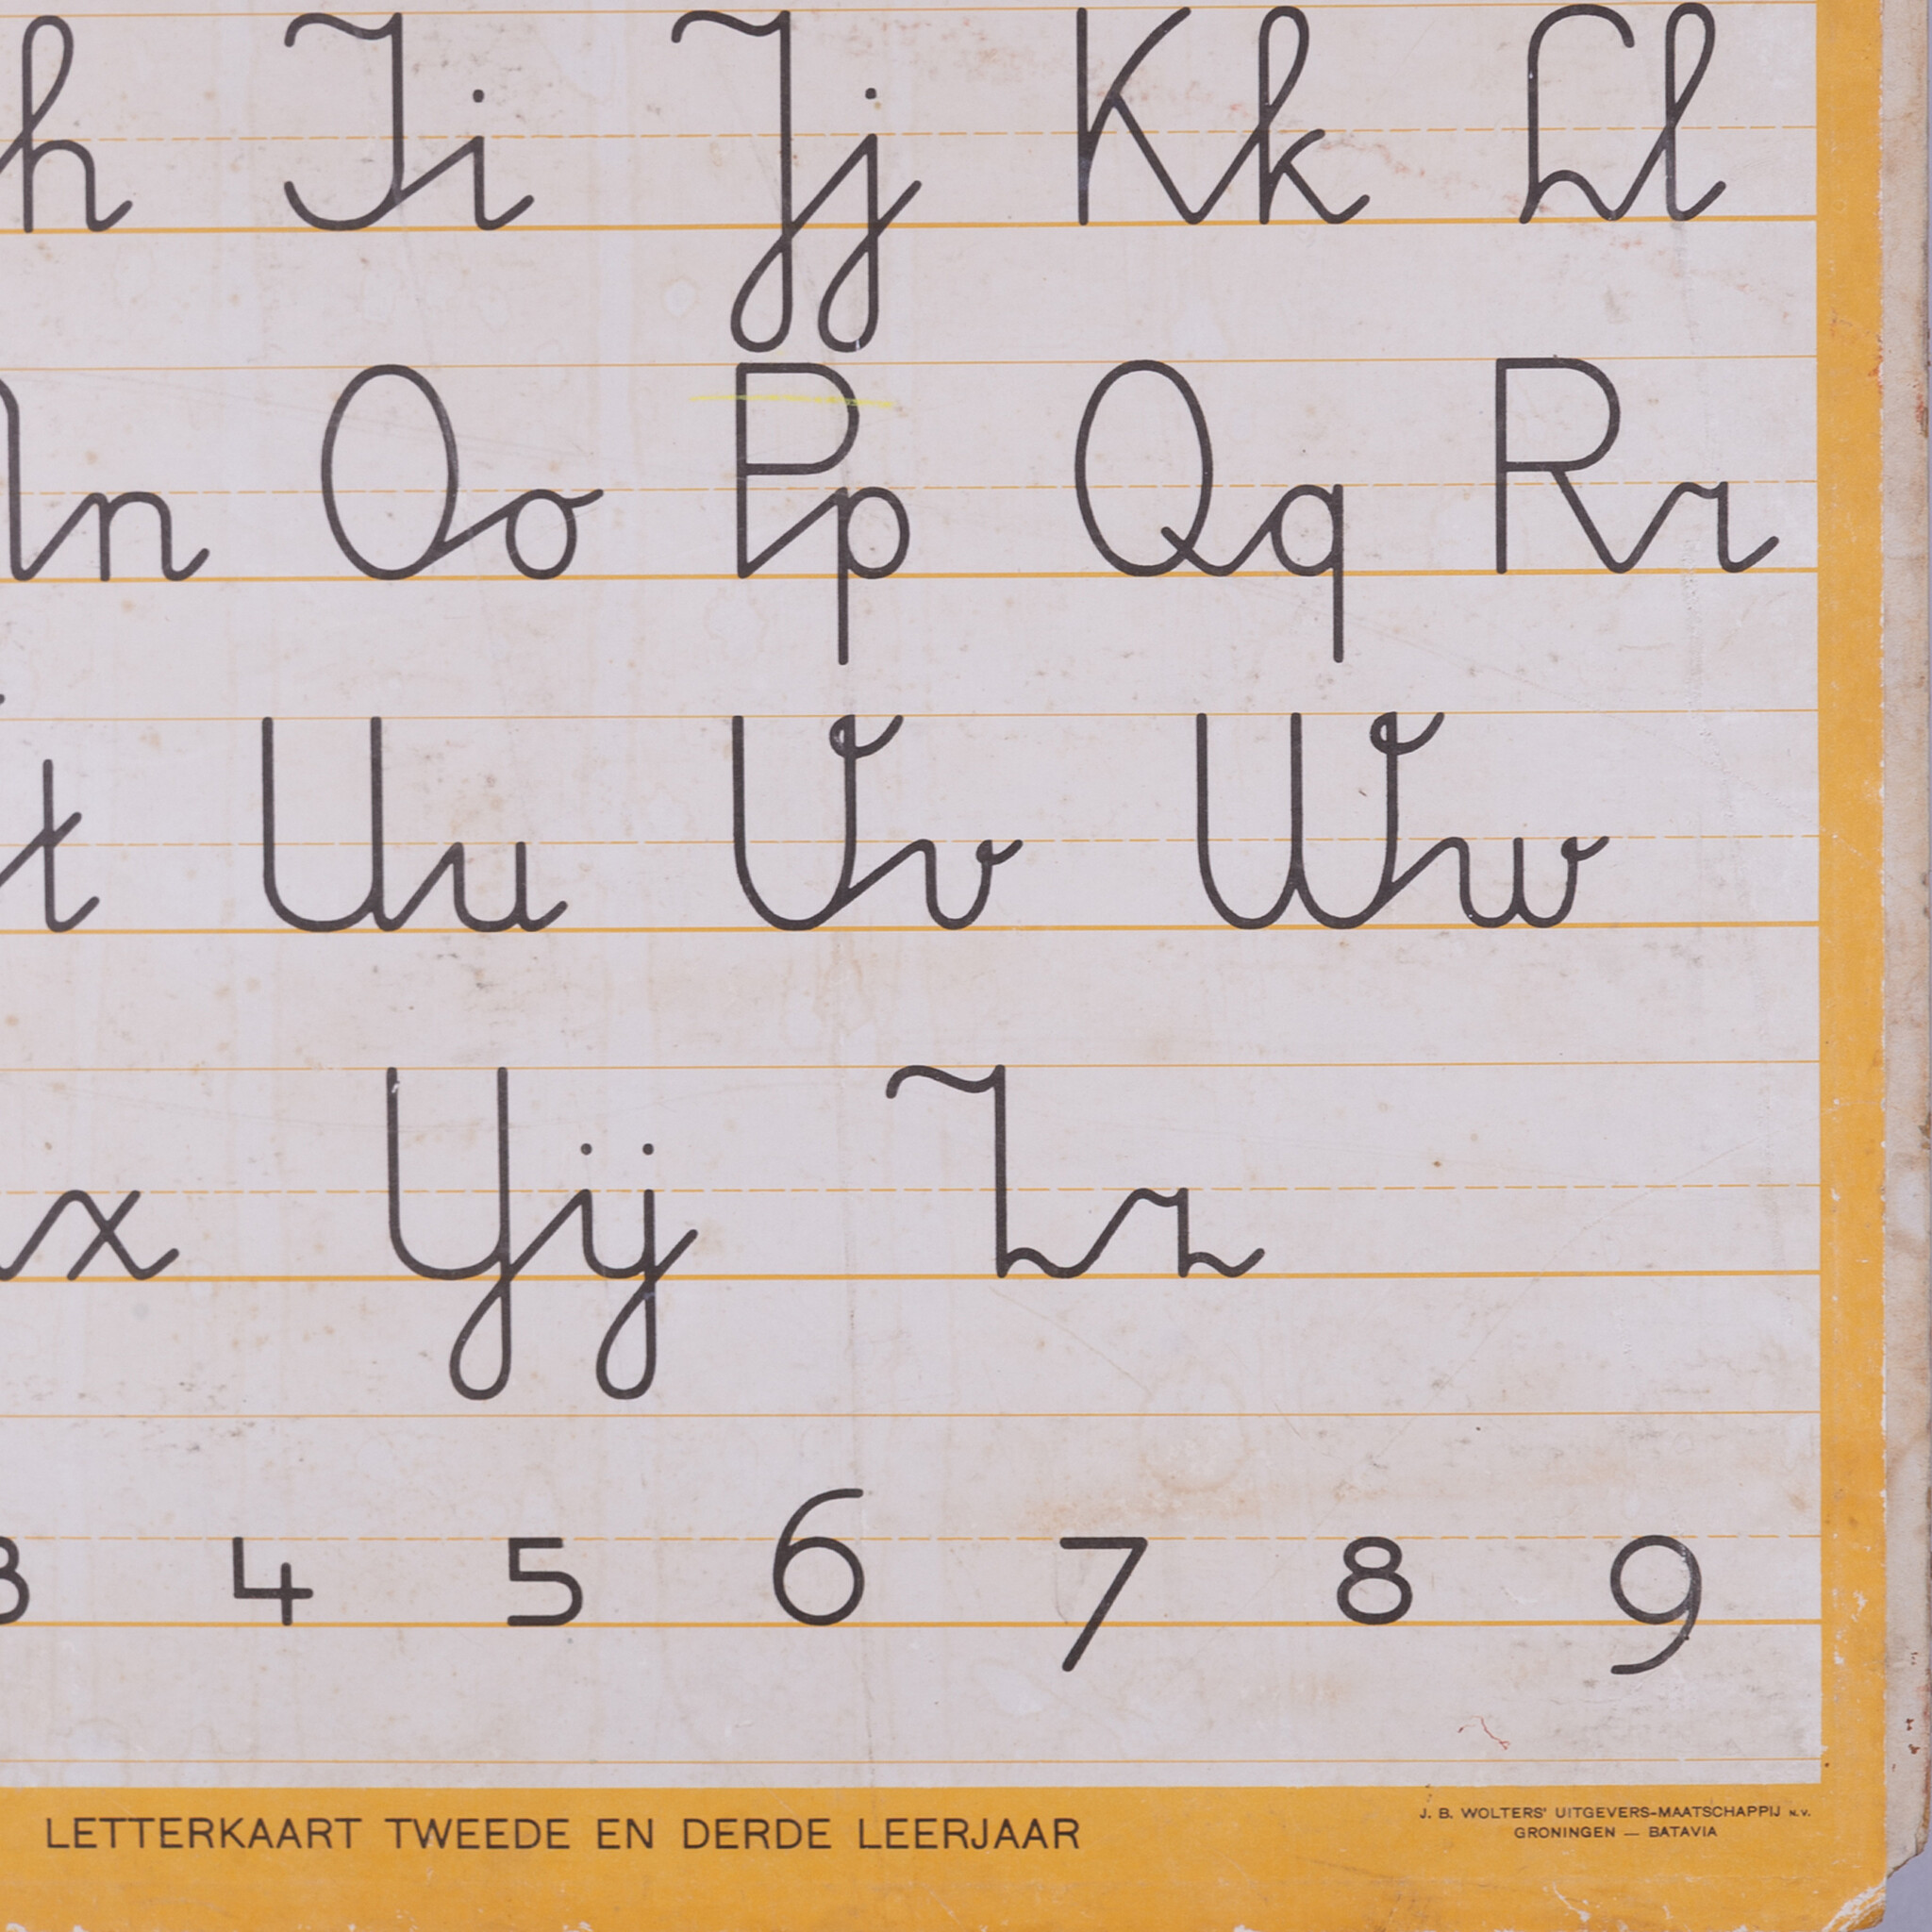 h Ii Jj Kk Ll
Nn Oo Pp Qq Rr
t Uu Vv Ww
x Yij Zz
3 4 5 6 7 8 9
LETTERKAART TWEEDE EN DERDE LEERJAAR
J. B. WOLTERS' UITGEVERS-MAATSCHAPPIJ N.V.
GRONINGEN — BATAVIA